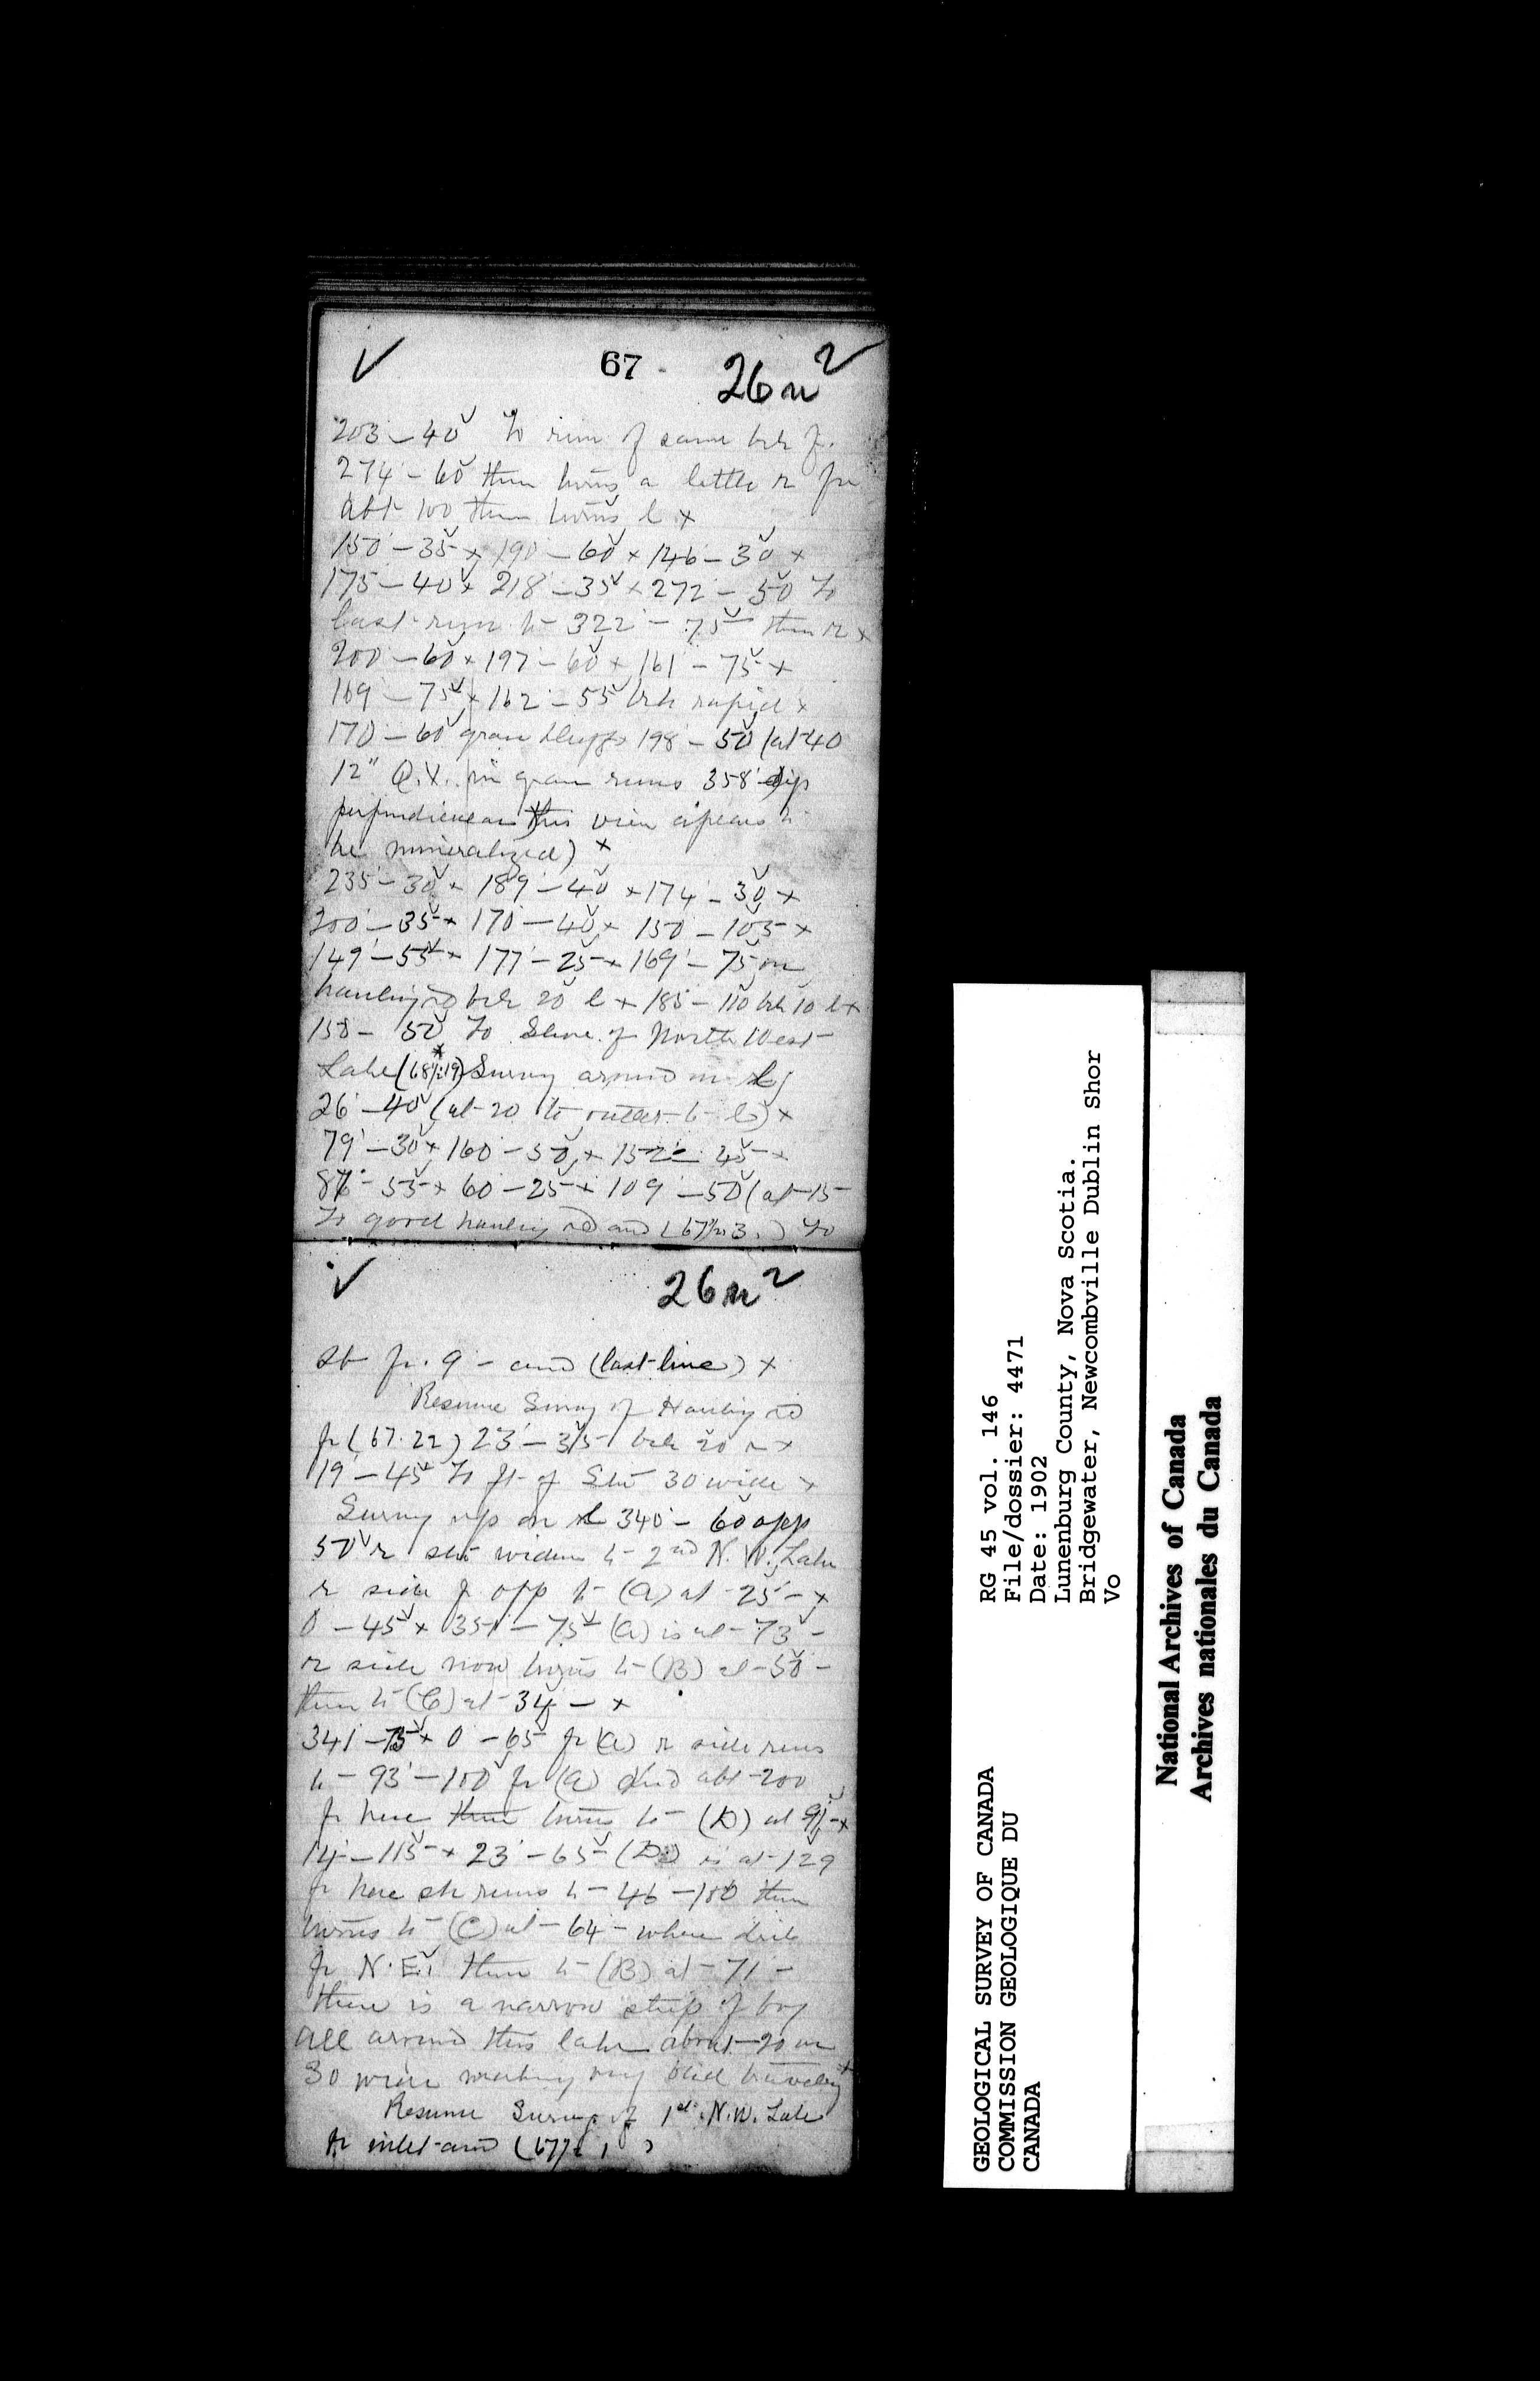 67
26 n 2
203 - 40 To run of same brk fr.
274 - 60 then turns a little r for
abt 100 then turns l x
150 - 35 x 190 - 60 x 146 - 30 x
175 - 40 x 218 - 35 x 272 - 50 To
last run to 322 - 75 then r x
200 - 60 x 197 - 60 x 161 - 75 x
169 - 75 x 162 - 55 brk rapid x
170 - 60 gran bluffs 198 - 50 (at 40
12" Q.V. in gran runs 358 dip
perpendicular this vein appears to
be mineralized) x
235 - 30 x 189 - 40 x 174 - 30 x
200 - 35 x 170 - 40 x 150 - 105 x
149 - 55 x 177 - 25 x 169 - 75 on
hauling rd brk 20 l x 185 - 110 brk 10 l x
150 - 50 To Shore of North West
Lake (68/:19) Survey around on l
26 - 40 (at 20 to outlet to l) x
79 - 30 x 160 - 50 x 152 - 45 x
86 - 55 x 60 - 25 x 109 - 50 (at 15
To good hauling rd and (67 3.) To
26 n 2
st fr. 9 - and (last line) x
Resume Survey of Hauling rd
fr (67.22) 23 - 35 brk 20 r x
19 - 45 To ft of Stw 30 wide x
Survey up on l 340 - 60 opp
50 r stw widens to 2nd N.W. Lake
r side fr opp to (a) at 25 - x
0 - 45 x 351 - 75 (a) is at 73 -
r side now turns to (B) at 50 -
then to (C) at 34 - x
341 - 75 x 0 - 65 fr (a) r side runs
to 93 - 100 fr (a) and abt 200
fr here then turns to (D) at 91 - x
14 - 115 x 23 - 65 (D) is at 129
fr here sh runs to 46 - 180 then
turns to (C) at 64 - where
fr N.E. then to (B) at 71 -
there is a narrow strip of bog
all around this lake about 20 or
30 wide making very bad traveling x
Resume Survey of 1st N.W. Lake
fr inlet and (67 1 )
GEOLOGICAL SURVEY OF CANADA
COMMISSION GEOLOGIQUE DU
CANADA
RG 45 vol. 146
File/dossier: 4471
Date: 1902
Lunenburg County, Nova Scotia.
Bridgewater, Newcombville Dublin Shor
Vo
National Archives of Canada
Archives nationales du Canada